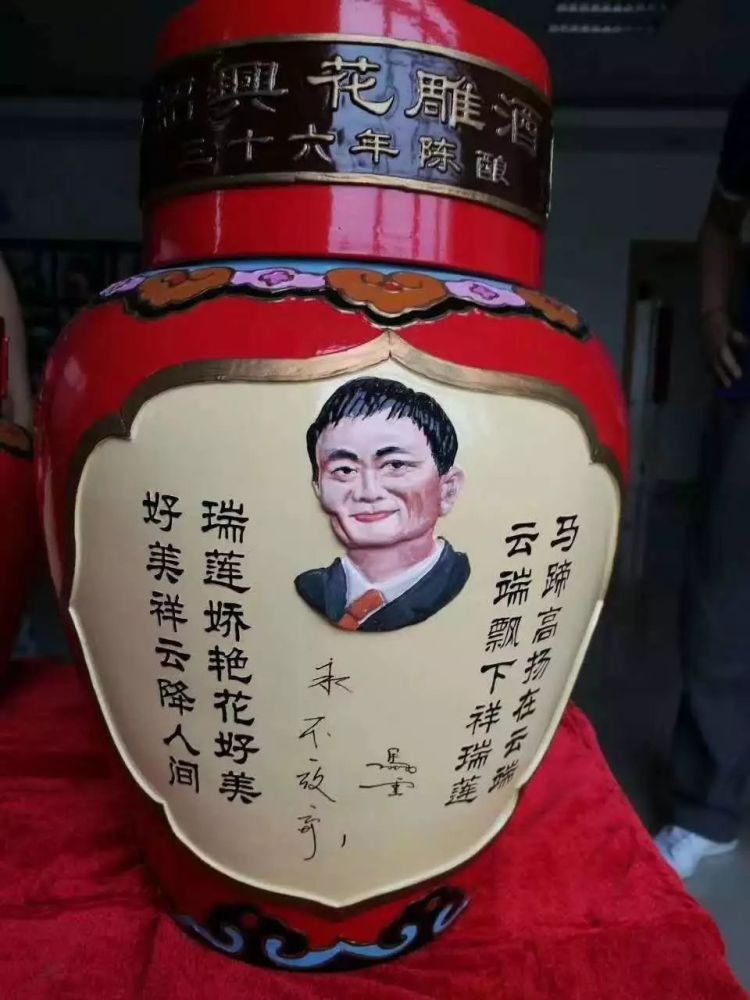 绍興花雕酒
三十六年陈酿
马蹄高扬在云端
云端飘下祥瑞莲
瑞莲娇艳花好美
好美祥云降人间
永不放弃！
馬雲